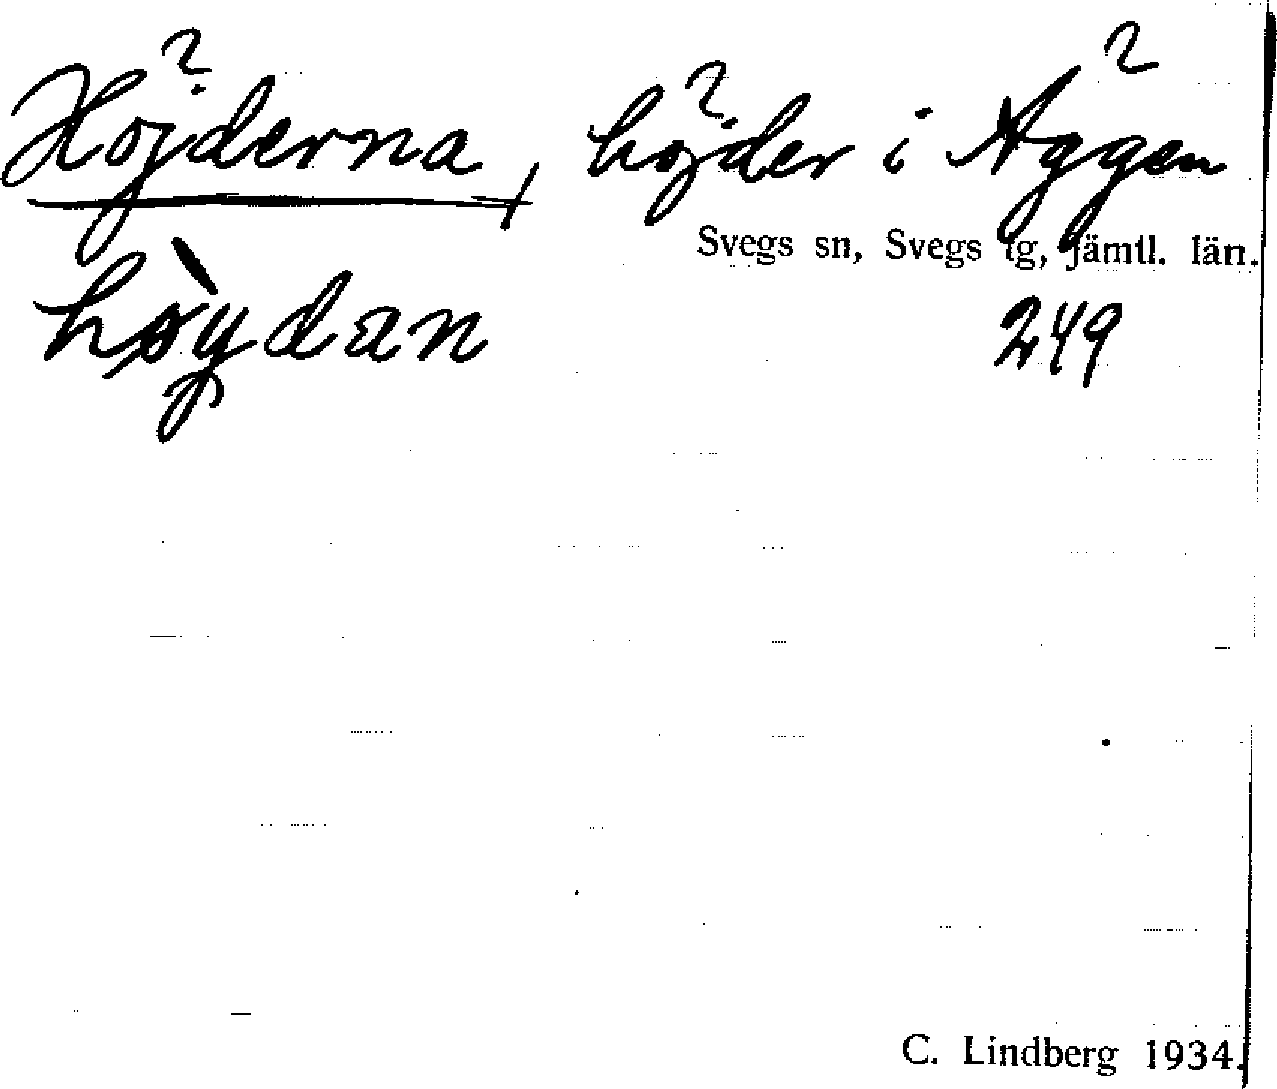 Höjderna, höjder i Äggen
Svegs sn, Svegs tg, Jämtl. län.
høydan 249
C. Lindberg 1934.